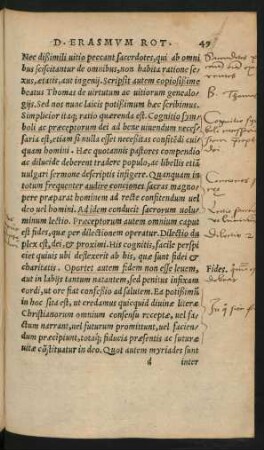 D. ERASMVM ROT. 49
Nec dissimili uitio peccant sacerdotes, qui ab omni
bus sciscitantur de omnibus, non habita ratione se-
xus, ætatis, aut ingenij. Scripsit autem copiosissime
beatus Thomas de uirtutum ac uitiorum genealo-
gijs. Sed nos nunc laicis potissimum hæc scribimus.
Simplicior itaq; ratio quærenda est. Cognitio symb
oli ac præceptorum dei ad bene uiuendum necess-
aria est, etiam si nulla esset necessitas confitēdi cui-
quam homini. Hæc quoq;annis pastores compendio
ac dilucide deberent tradere populo, ac libellis etiā
uulgari sermone descriptis insigere. Quanquam in
totum frequenter audire conciones sacras magno-
pere præparat hominem ad recte confitendum uel
deo uel homini. Ad idem conducit sacrorum uolu-
minum lectio. Præceptorum autem omnium caput
est fides, quæ per dilectionem operatur. Dilectio du
plex est, dei, & proximi. His cognitis, facile perspi
ciet quiuis ubi deflexerit ab his, quæ sunt fidei &
charitatis. Oportet autem fidem non esse leuem,
aut in labijs tantum natantem, sed penitus infixam
cordi, ut ore fiat confessio ad salutem. Ea potissimū
in hoc sita est, ut credamus quicquid diuinæ literæ
Christianorum omnium consensu receptæ, uel fa-
ctum narrant, uel futurum promittunt, uel facien-
dum præcipiunt, totaq; fiducia præsentis ac futuræ
uitæ cōstituatur in deo. Quot autem myriades sunt
d inter
B. Thomas
Fides